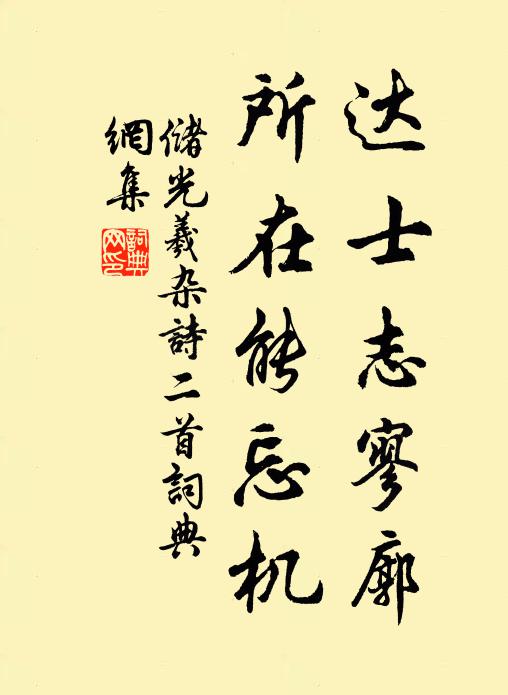 达士志寥廓
所在能忘机
储光羲杂詩二首詞典
網集
詞典
网印